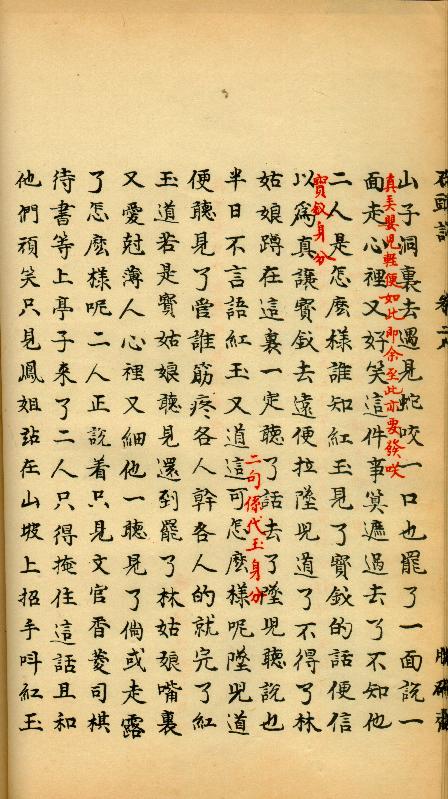 石頭記
脂硯齋
山子洞裏去遇見蛇咬一口也罷了一面說一
真美嬰児輕便如此即余至此亦要發咲
面走心裡又好笑這件事筭遮過去了不知他
二人是怎麽樣誰知紅玉見了寶釵的話便信
寶釵身分
以爲真讓寶釵去遠便拉墜児道了不得了林
姑娘蹲在這裏一定聽了話去了墜児聽說也
二句係代玉身分
半日不言語紅玉又道這可怎麽樣呢墜児道
便聽見了管誰筋疼各人幹各人的就完了紅
玉道若是寶姑娘聽見還到罷了林姑娘嘴裏
又愛尅薄人心裡又細他一聽見了倘或走露
了怎麽樣呢二人正說着只見文官香菱司棋
待書等上亭子來了二人只得掩住這話且和
他們頑笑只見鳳姐站在山坡上招手呌紅玉